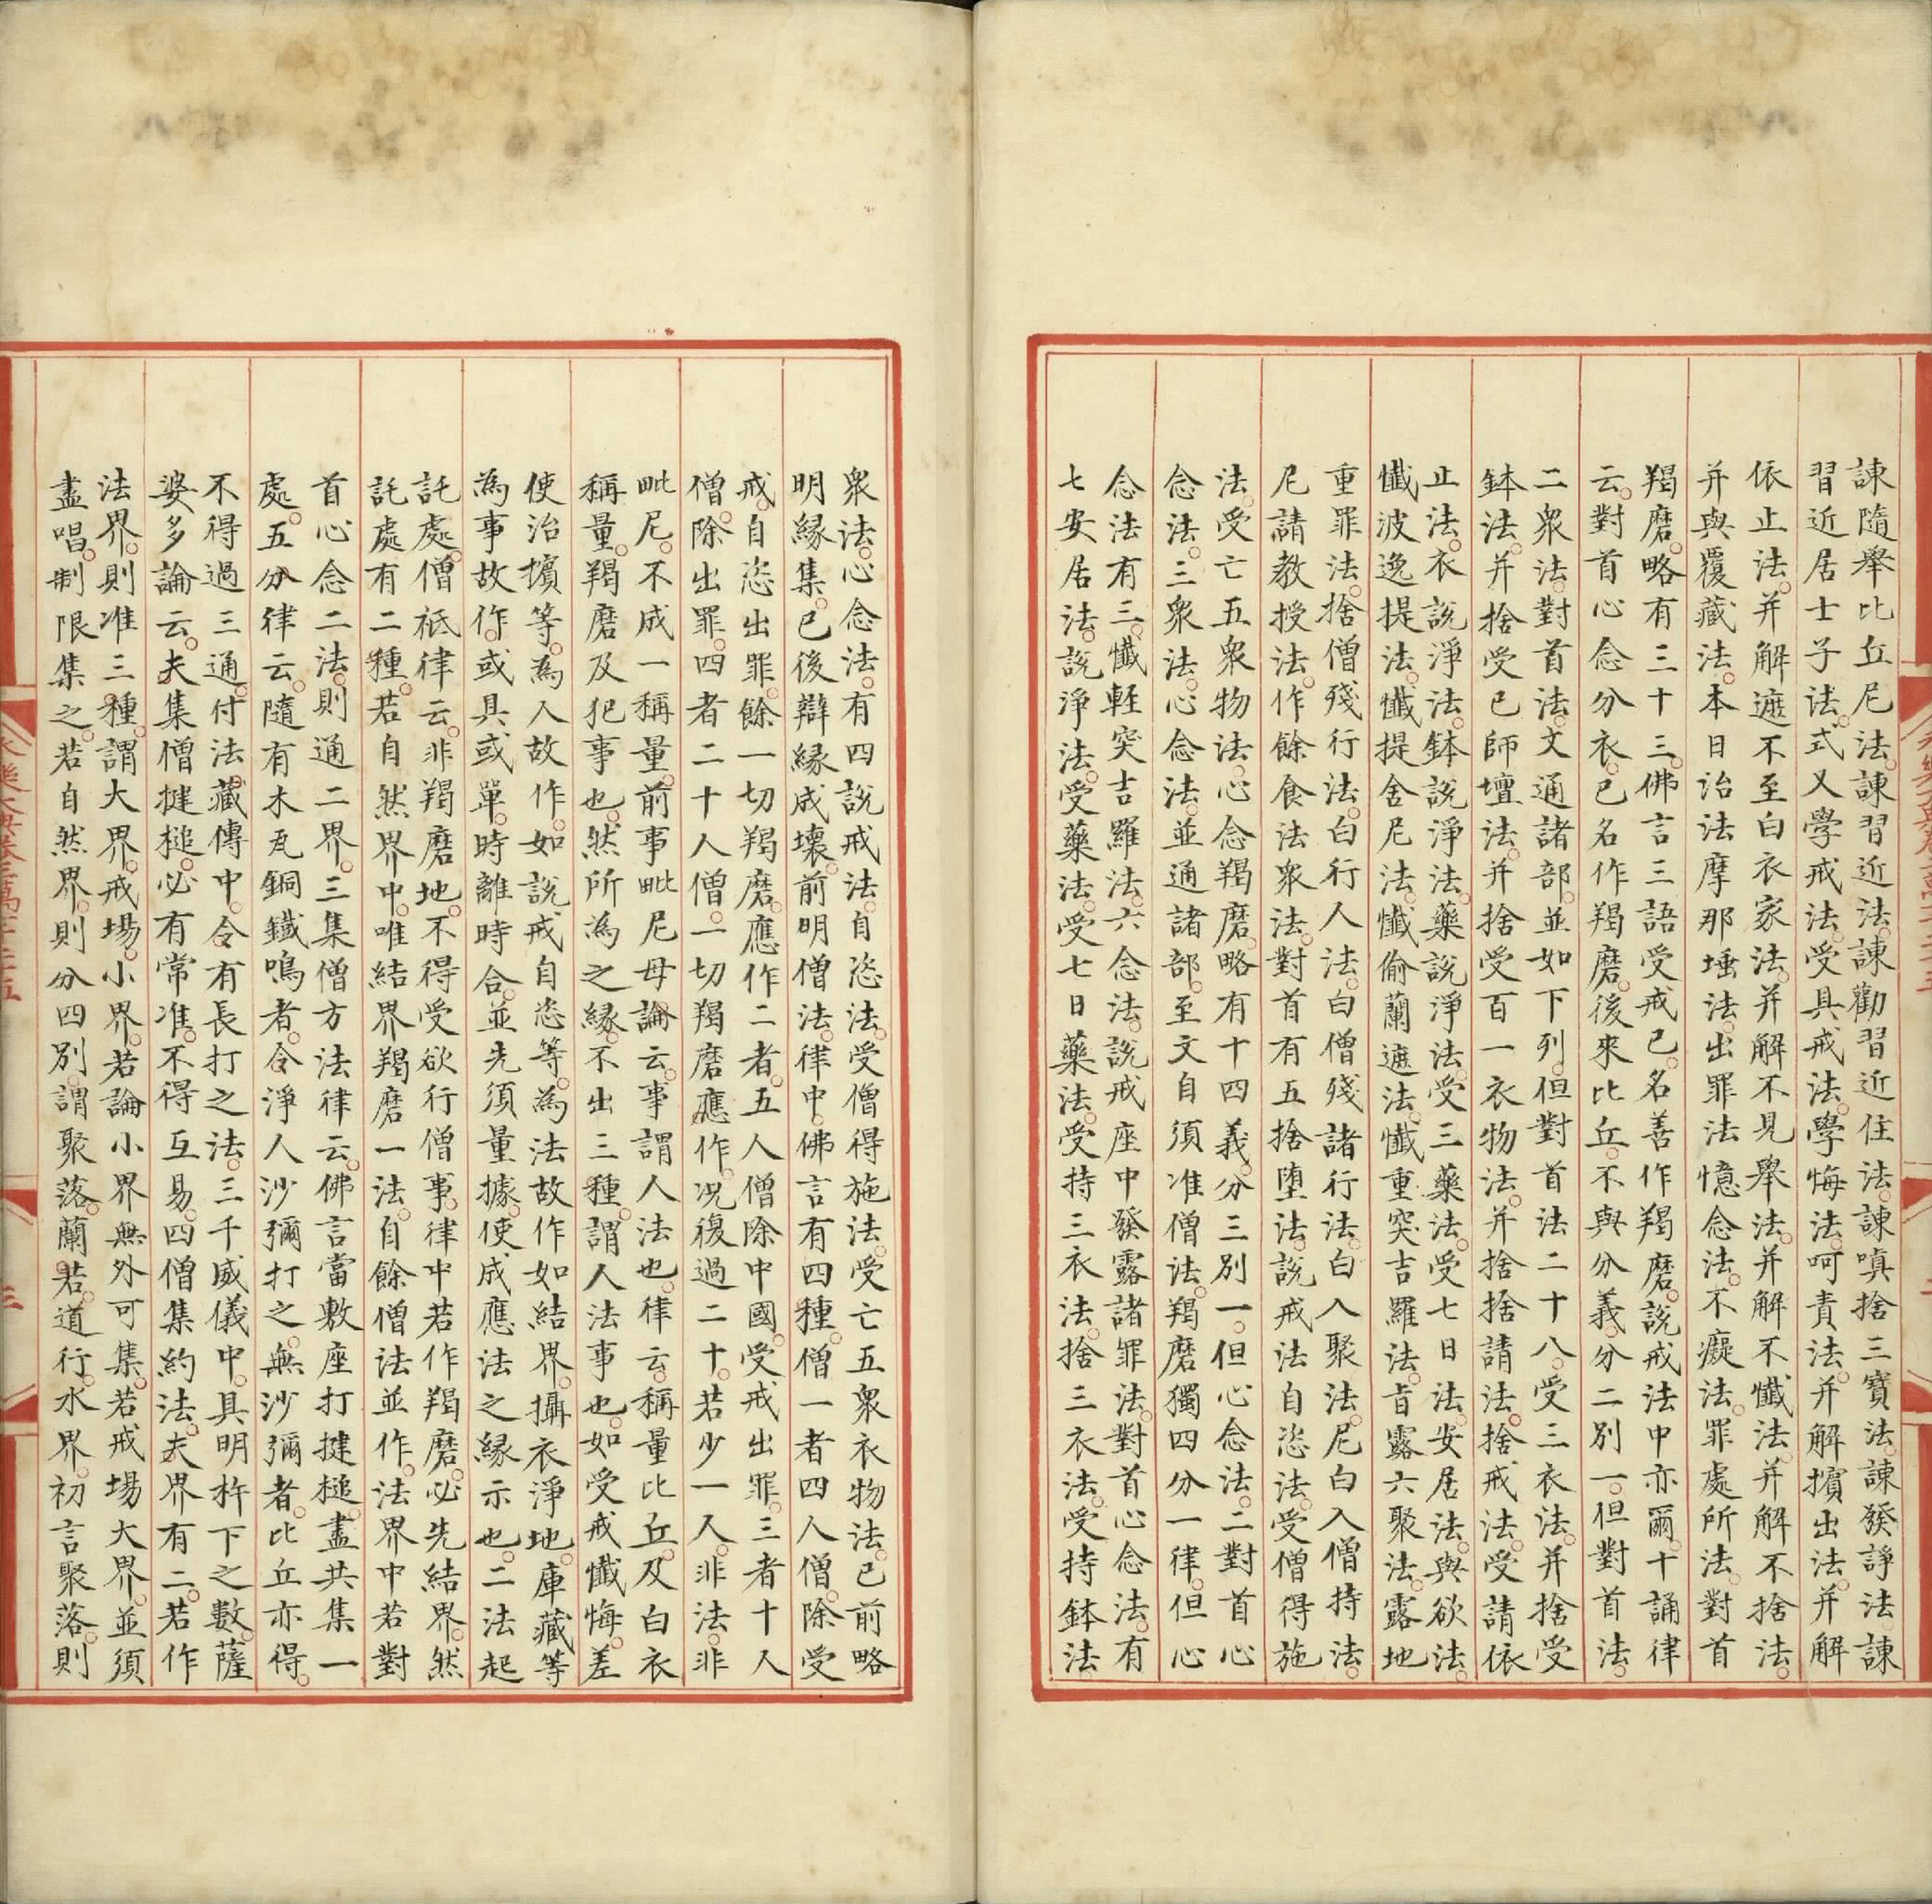 諫隨舉比丘尼法諫習近法諫勸習近住法諫嗔捨三寶法諫發諍法諫
習近居士子法式叉學戒法受具戒法學悔法呵責法并解擯出法并解
依止法并解遮不至白衣家法并解不見舉法并解不懺法并解不捨法
并與覆藏法本日治法摩那埵法出罪法憶念法不癡法罪處所法對首
羯磨略有三十三佛言三語受戒已名善作羯磨說戒法中亦爾十誦律
云對首心念分衣已名作羯磨後來比丘不與分義分二別一但對首法
二衆法對首法文通諸部並如下列但對首法二十八受三衣法并捨受
鉢法并捨受已師壇法并捨受百一衣物法并捨捨請法捨戒法受請依
止法衣說淨法鉢說淨法藥說淨法受三藥法受七日法安居法與欲法
懺波逸提法懺提舍尼法懺偷蘭遮法懺重突吉羅法旨露六聚法露地
重罪法捨僧殘行法白行人法白僧殘諸行法白入聚法尼白入僧持法
尼請教授法作餘食法衆法對首有五捨堕法說戒法自恣法受僧得施
法受亡五衆物法心念羯磨略有十四義分三別一但心念法二對首心
念法三衆法心念法並通諸部至文自須准僧法羯磨獨四分一律但心
念法有三懺軽突吉羅法六念法說戒座中發露諸罪法對首心念法有
七安居法說淨法受藥法受七日藥法受持三衣法捨三衣法受持鉢法
衆法心念法有四說戒法自恣法受僧得施法受亡五衆衣物法已前略
明縁集已後辯縁成壞前明僧法律中佛言有四種僧一者四人僧除受
戒自恣出罪餘一切羯磨應作二者五人僧除中國受戒出罪三者十人
僧除出罪四者二十人僧一切羯磨應作况復過二十若少一人非法非
毗尼不成一稱量前事毗尼母論云事謂人法也律云稱量比丘及白衣
稱量羯磨及犯事也然所為之縁不出三種謂人法事也如受戒懺悔差
使治擯等為人故作如說戒自恣等為法故作如結界攝衣淨地庫藏等
為事故作或具或單時離時合並先須量據使成應法之縁示也二法起
託處僧祇律云非羯磨地不得受欲行僧事律中若作羯磨必先結界然
託處有二種若自然界中唯結界羯磨一法自餘僧法並作法界中若對
首心念二法則通二界三集僧方法律云佛言當敷座打揵槌盡共集一
處五分律云隨有木瓦銅鐵鳴者令淨人沙彌打之無沙彌者比丘亦得
不得過三通付法藏傳中令有長打之法三千威儀中具明杵下之數薩
婆多論云夫集僧揵槌必有常准不得互易四僧集約法夫界有二若作
法界則准三種謂大界戒場小界若論小界無外可集若戒場大界並須
盡唱制限集之若自然界則分四別謂聚落蘭若道行水界初言聚落則